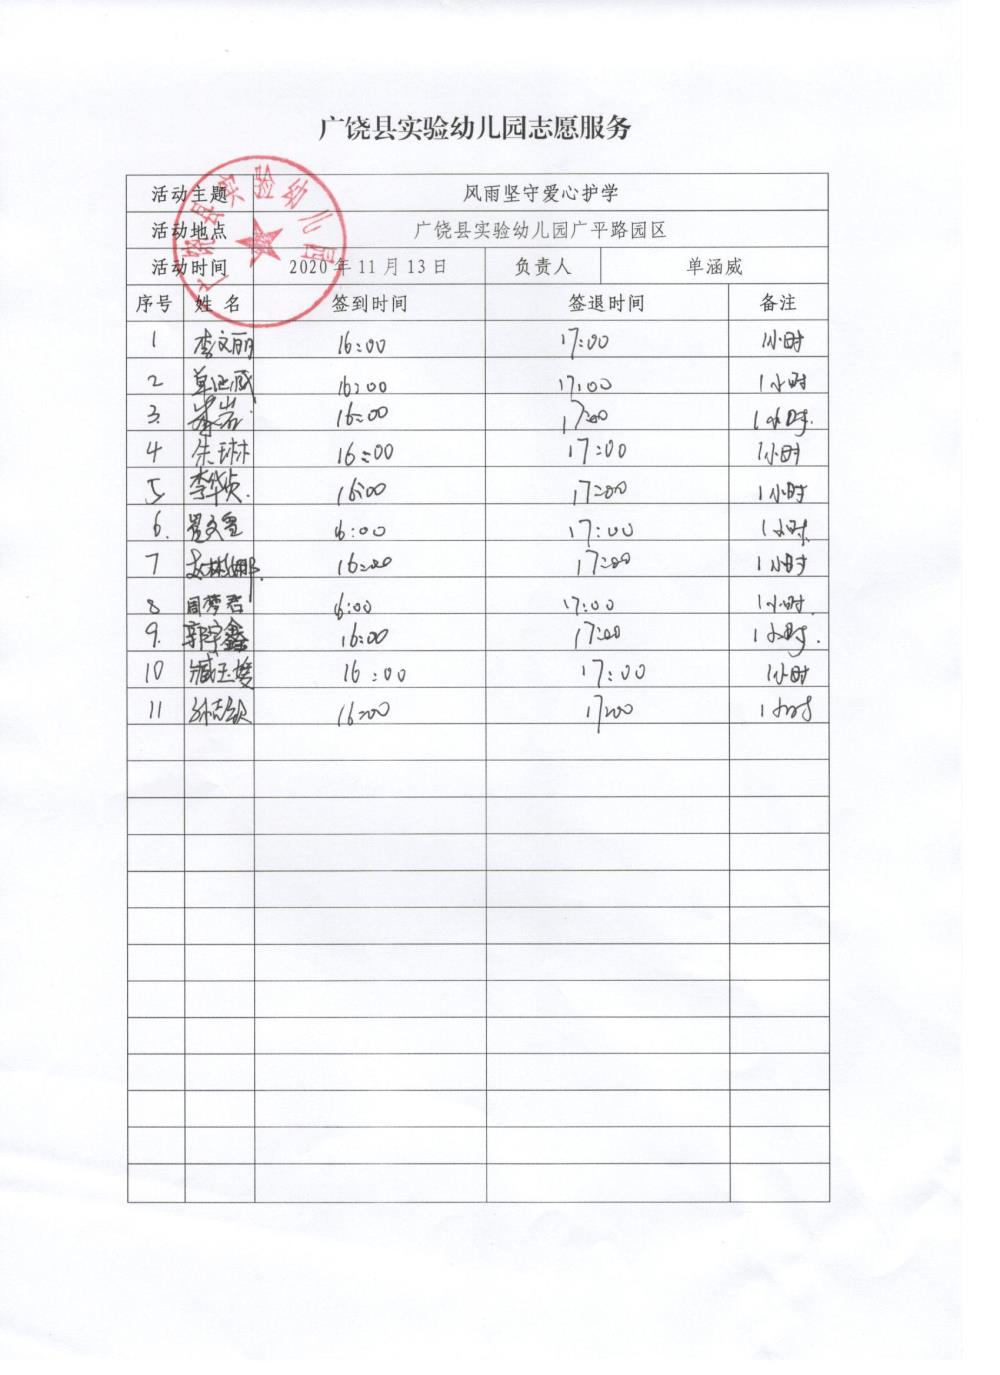 广饶县实验幼儿园志愿服务
广饶县实验幼儿园
活动主题 风雨坚守爱心护学
活动地点 广饶县实验幼儿园广平路园区
活动时间 2020年11月13日 负责人 单涵威
序号 姓名 签到时间 签退时间 备注
1 李文丽 16:00 17:00 1小时
2 16:00 17:00 1小时
3. 16:00 17:00 1小时.
4 朱琳琳 16:00 17:00 1小时
5 李华 16:00 17:00 1小时
6. 6:00 17:00 1小时.
7 林娜. 16:00 17:00 1小时
8 周梦君 6:00 17:00 1小时.
9. 郭宇鑫 16:00 17:00 1小时.
10 臧玉 16:00 17:00 1小时
11 孙志 16:00 17:00 1小时